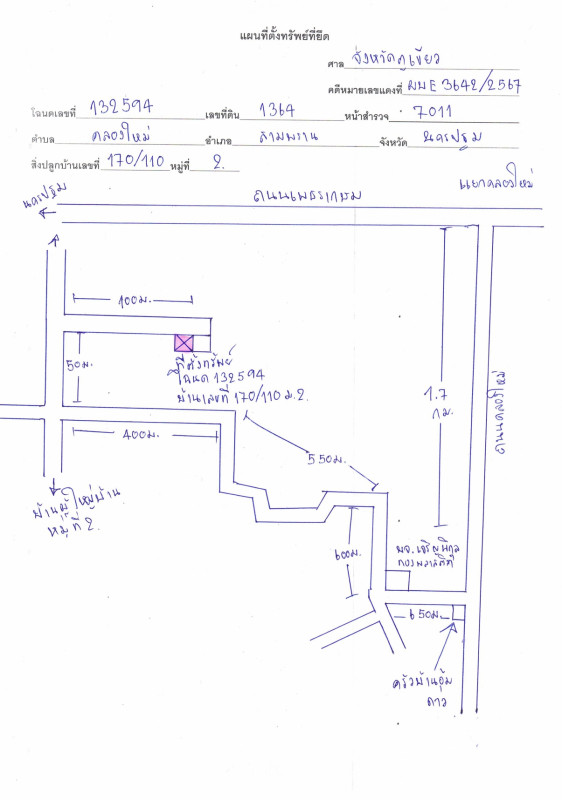 แผนที่ตั้งทรัพย์ที่ยึด
ศาล จังหวัดภูเขียว
คดีหมายเลขแดงที่ ผบE 3642/2567
โฉนดเลขที่ 132594 เลขที่ดิน 1364 หน้าสำรวจ 7011
ตำบล คลองใหม่ อำเภอ สามพราน จังหวัด นครปฐม
สิ่งปลูกบ้านเลขที่ 170/110 หมู่ที่ 2.
นครปฐม
ถนนเพชรเกษม
แยกคลองใหม่
100ม.
50ม.
ที่ตั้งทรัพย์
โฉนด 132594
บ้านเลขที่ 170/110 ม.2.
1.7
กม.
ถนนคลองใหม่
400ม.
550ม.
บ้านผู้ใหญ่บ้าน
หมู่ที่ 2.
600ม.
หจ.เจริญพิกุล
ทองพลาสติก
650ม.
ครัวบ้านอุ้ม
ดาว